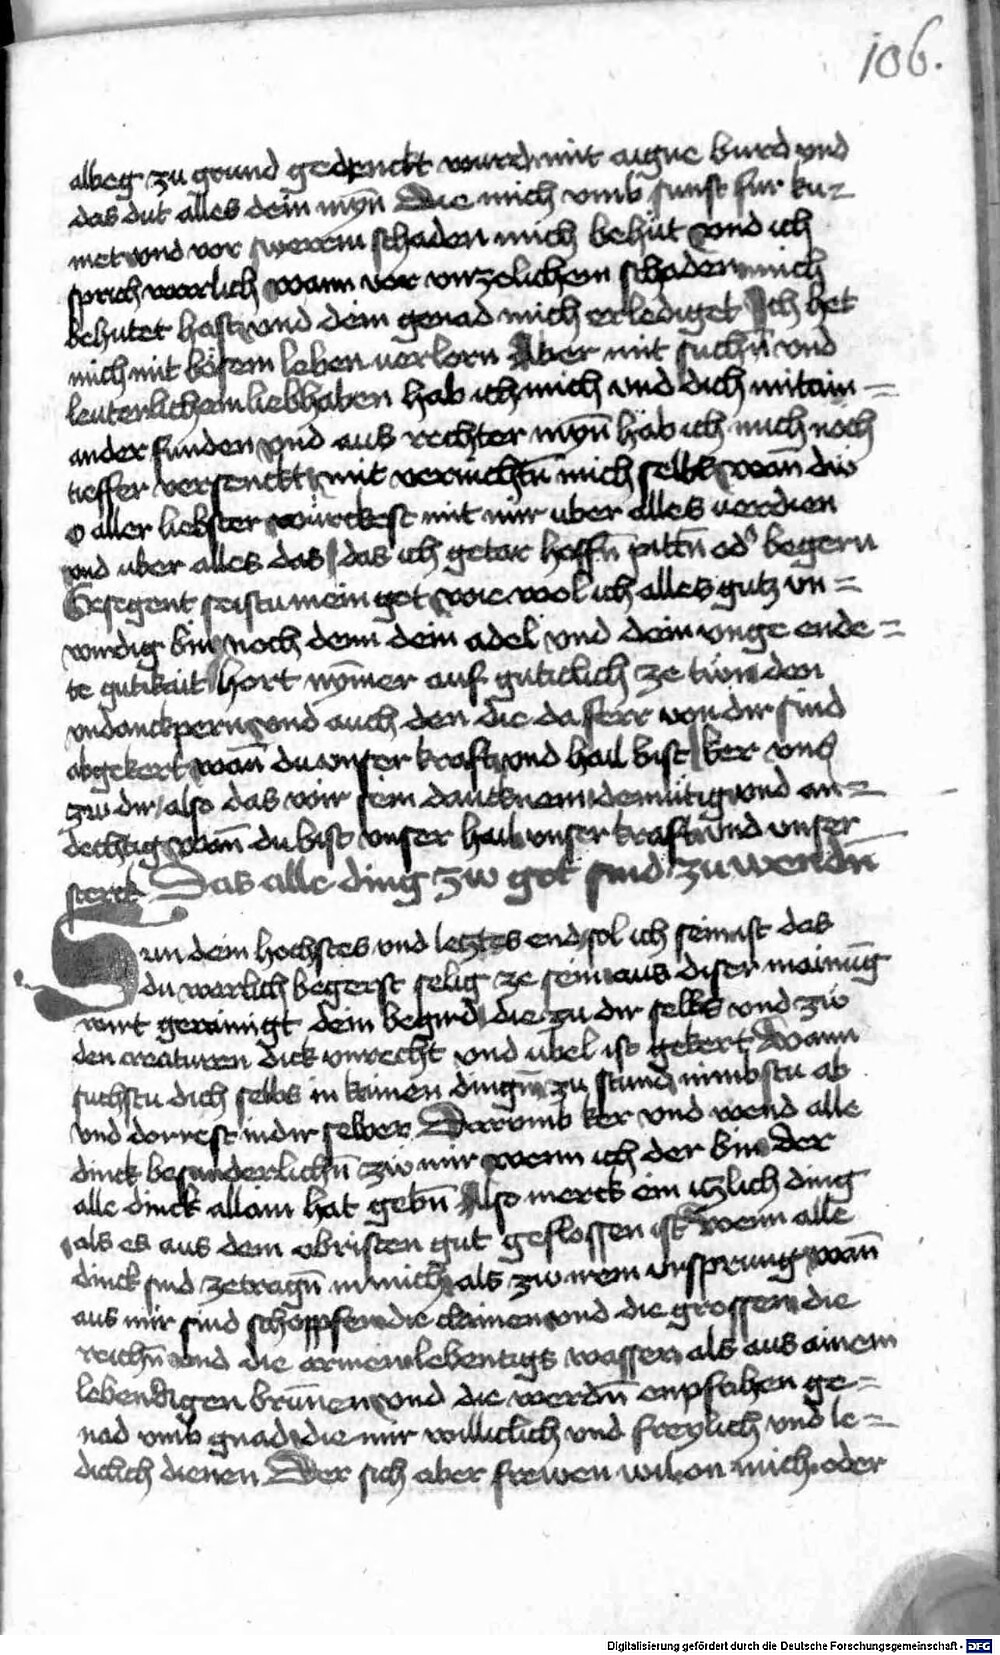 106.
albeg zu grund gedruckt wurd mit aigne burd vnd
das dut alles dein myn̄ Die mich vmb sunst fur ku-
met vnd vor swerem schaden mich behüt vnd ich
sprich warlich wann vor vnzelichem schaden mich
behutet hast vnd dein genad mich erlediget Ich het
mich mit bösem leben verlorn Aber mit suchn̄ vnd
leuterlichem liebhaben hab ich mich vnd dich mitain=
ander funden vnd aus rechter myn̄ hab ich mich noch
tieffer versenckt mit vernichtn̄ mich selbs wan̄ dw
o aller liebster würckest mit mir uber alles verdien
vnd uber alles das das ich getar hoffn̄ pittn̄ od' begern
Gesegent seistu mein got wie wol ich alles gutz vn=
wirdig bin noch denn dein adel vnd dein vnge ende=
te gutikait hort nym̄er auf gutlich ze tun den
vndanckpern vnd auch den die da ferr von dir sind
abgekert wan̄ du vnser kraft vnd hail bist ker vns
zw dir also das wir sein dancknem demütig vnd an=
dechtig wan̄ du bist vnser hail vnser kraft vnd vnser
sterck Das alle ding zw got sind zu wendn̄
Sun dein hochstes vnd letztes end sol ich sein ist das
du warlich begerst selig ze sein aus diser mainūg
wirt gerainigt dein begird die zu dir selbs vnd zw
den creaturen dick vnrecht vnd übel ist gekert Wann
suchstu dich selbs in kainen dingn̄ zu stund nimbstu ab
vnd dorrest in dir selber Darumb ker vnd wend alle
dinck besunderlichn̄ zw mir wenn ich der bin der
alle dinck allain hat gebn̄ Also merck ein itzlich ding
als es aus dem obristen gut geflossen ist wenn alle
dinck sind zetragn̄ in mich als zw irem vrsprung wan̄
aus mir sind schöpffen die clainen vnd die grossen die
reichn̄ vnd die armen lebentigs wasser als aus ainem
lebendigen brūnen vnd die werdn̄ enpfahen ge=
nad vmb gnad die mir williclich vnd freylich vnd le=
diclich dienen Der sich aber frewen wil on mich oder
Digitalisierung gefördert durch die Deutsche Forschungsgemeinschaft - DFG